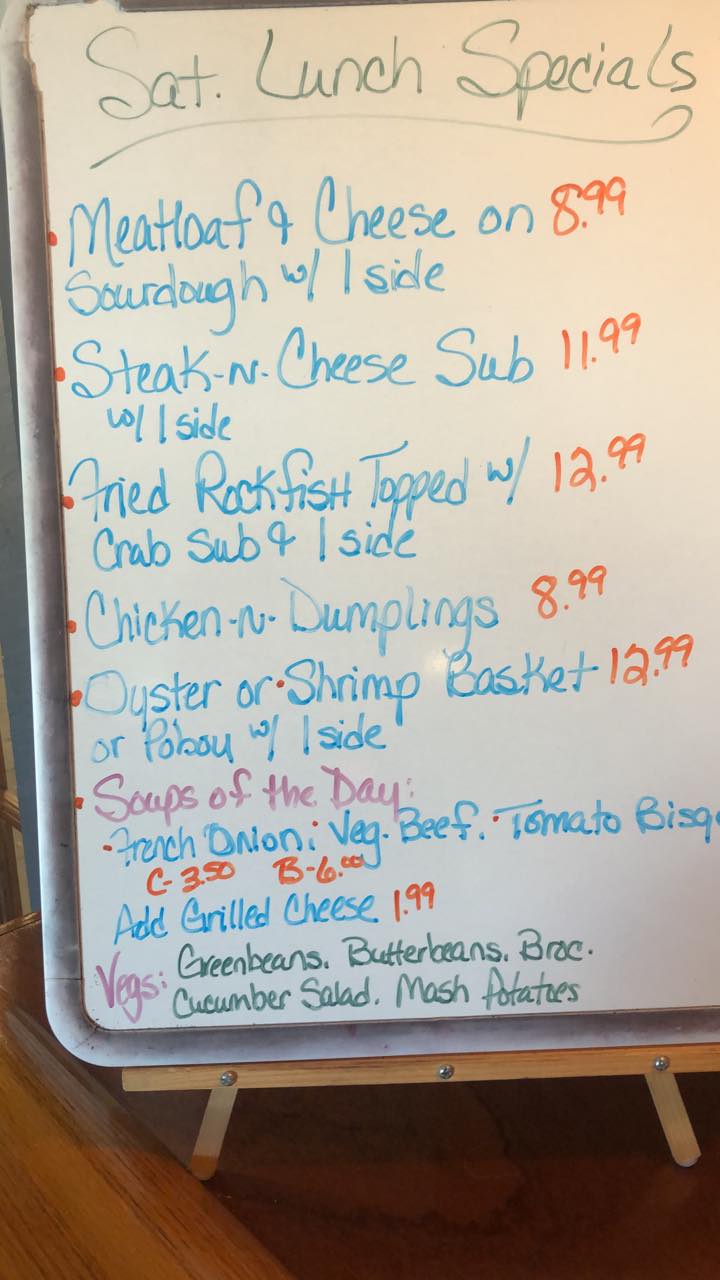 Sat. Lunch Specials
• Meatloaf & Cheese on 8.99
Sourdough w/ 1 side
• Steak-n-Cheese Sub 11.99
w/ 1 side
• Fried Rockfish Topped w/ 12.99
Crab Sub & 1 side
• Chicken-n-Dumplings 8.99
• Oyster or • Shrimp Basket 12.99
or Poboy w/ 1 side
• Soups of the Day:
• French Onion • Veg. Beef. • Tomato Bisq
C- 3.50 B- 6.00
Add Grilled Cheese 1.99
Vegs: Greenbeans. Butterbeans. Broc.
Cucumber Salad. Mash Potatoes